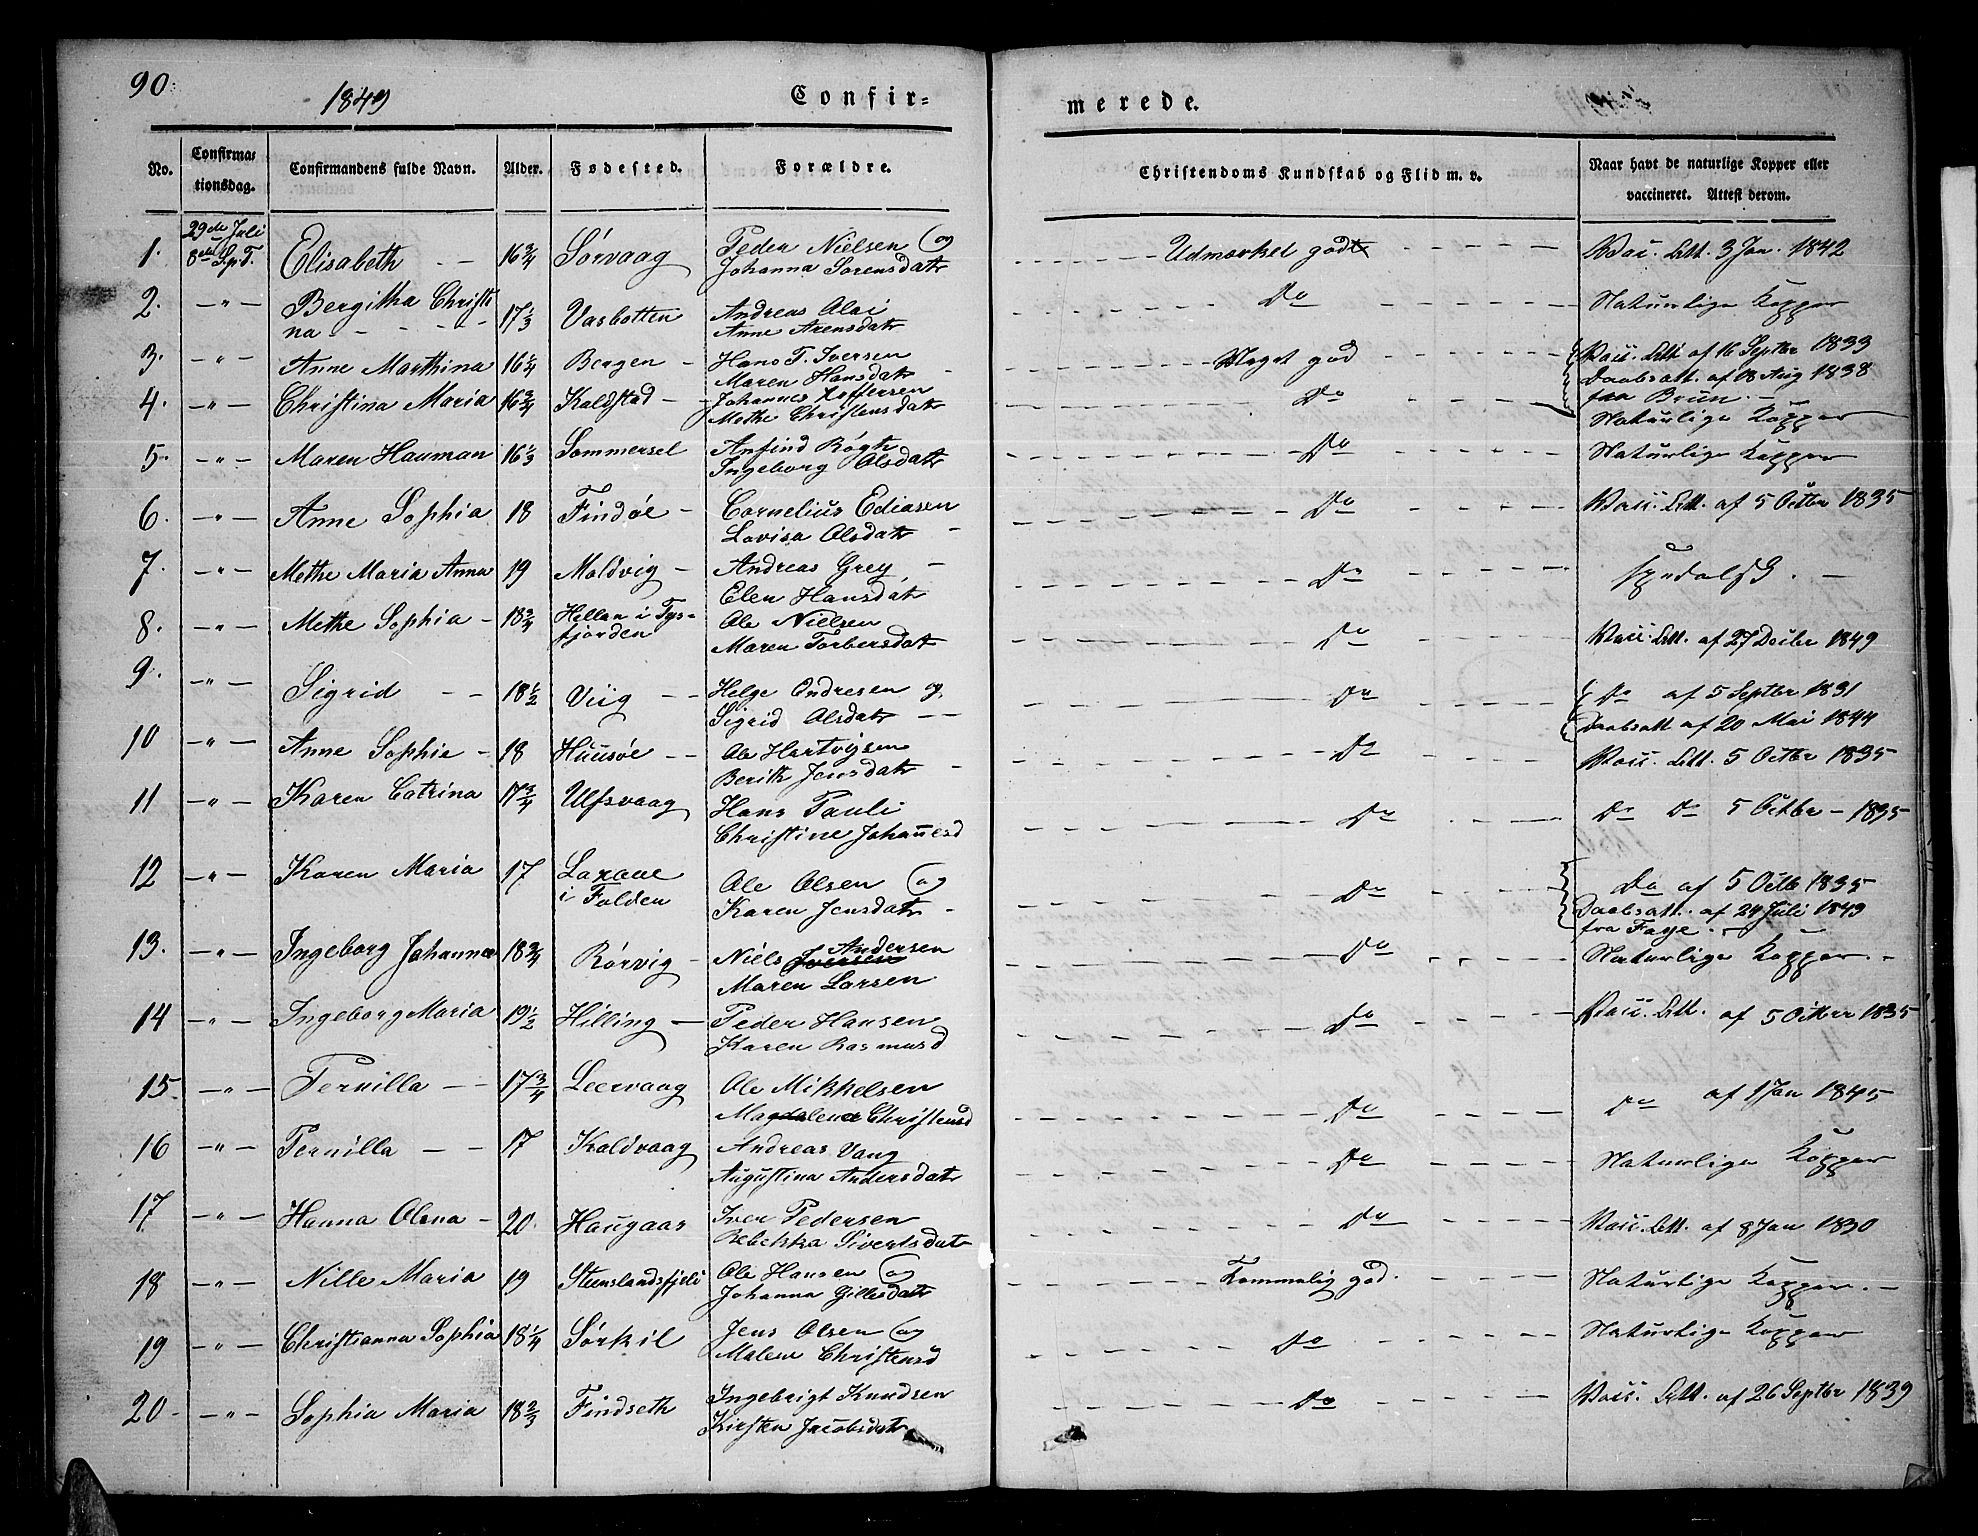 90.
1849
Confir=
merede.
No.
Confirma=
tionsdag.
Confirmandens fulde Navn.
Alder.
Fødested.
Forældre.
Christendoms Kundskab og Flid m. v.
Naar havt de naturlige Kopper eller
vaccineret. Attest derom.
29de Juli
1. 8de Sp.T. Elisabeth - - 16 3/4 Sørvaag Peder Nielsen og
Johanna Sørensdatr
Udmærket godt Vacc. Att. 3 Jan. 1842
2. -"- Bergitha Christi
na - - - - 17 1/3 Vasbotten Andreas Olai
Anne Arensdatr
Do Naturlige Kopper
3. -"- Anne Marthina 16 1/4 Bergen - Hans T. Iversen
Maren Hansdatr
Meget god Vacc. Att. af 16 Septbr 1833
Daabsatt. af 18 Aug 1838
fra Brun. -
4. -"- Christina Maria 16 3/4 Kaldstad - Johannes
Methe Christensdatr
Do Naturlige Kopper
5. -"- Maren Hauman 16 1/3 Sommersel Anfind Røgh
Ingeborg Olsdatr
Do Naturlige Kopper
6. -"- Anne Sophia 18 Findøe - Cornelius Ediasen
Lovisa Olsdatr -
Do Vacc. Att. af 5 Octbr 1835
7. -"- Methe Maria Anna 19 Moldvig - Andreas Grey -
Elen Hansdatr
Do Spedalsk. -
8. -"- Methe Sophia - 18 3/4 Hellan i Tys-
fjorden Ole Nielsen
Maren Torbersdatr
Do Vacc. Att. af 27 Decbr 1849
9. -"- Sigrid - - 18 1/2 Viig - - Helge Andresen og
Sigrid Olsdatr - -
Do Do af 5 Septbr 1831
Daabsatt af 20 Mai 1844
10 -"- Anne Sophie - 18 Huusøe - - Ole Hartvigsen
Berith Jensdatr -
Do Vacc. Att. 5 Octbr 1835
11 -"- Karen Catrina 17 3/4 Ulfsvaag Hans Pauli
Christine Johannesd
Do Do Do 5 Octbr - 1835
12 -"- Karen Maria 17 Laxaae
i Folden Ole Olsen og
Karen Jensdatr -
Do Do af 5 Octb 1835
Daabsatt. af 24 Juli 1849
fra Faye. -
13. -"- Ingeborg Johanna 18 3/4 Rørvig - Niels Iversen Andersen
Maren Larsen
Do Naturlige Kopper. -
14 -"- Ingeborg Maria 19 1/2 Hilling - Peder Hansen
Karen Rasmusd
Do Vacc. Att. af 5 Octbr 1835
15. -"- Pernilla - - 17 3/4 Leervaag Ole Mikkelsen
Magdalena Christensd
Do Do af 1 Jan 1845
16 -"- Pernilla - - 17 Kaldvaag Andreas Vang
Augustina Andersdatr
Do Naturlige Kopper
17 -"- Hanna Olena - 20. Haugaas Iver Pedersen
Rebekka Sivertsdatr
Do Vacc. Att. af 8 Jan 1830
18 -"- Nille Maria 19 Steenslandsfjeli Ole Hansen og
Johanna Gillesdatr
Temmelig god. Naturlige Kopper. -
19 -"- Christianna Sophia 18 1/4 Sørkil Jens Olsen og
Malene Christensd
Do Naturlige Kopper
20 -"- Sophia Maria 18 2/3 Findseth Ingebrigt Knudsen
Kirsten Jacobsdatr
Do Vacc. Att. af 26 Septbr 1839